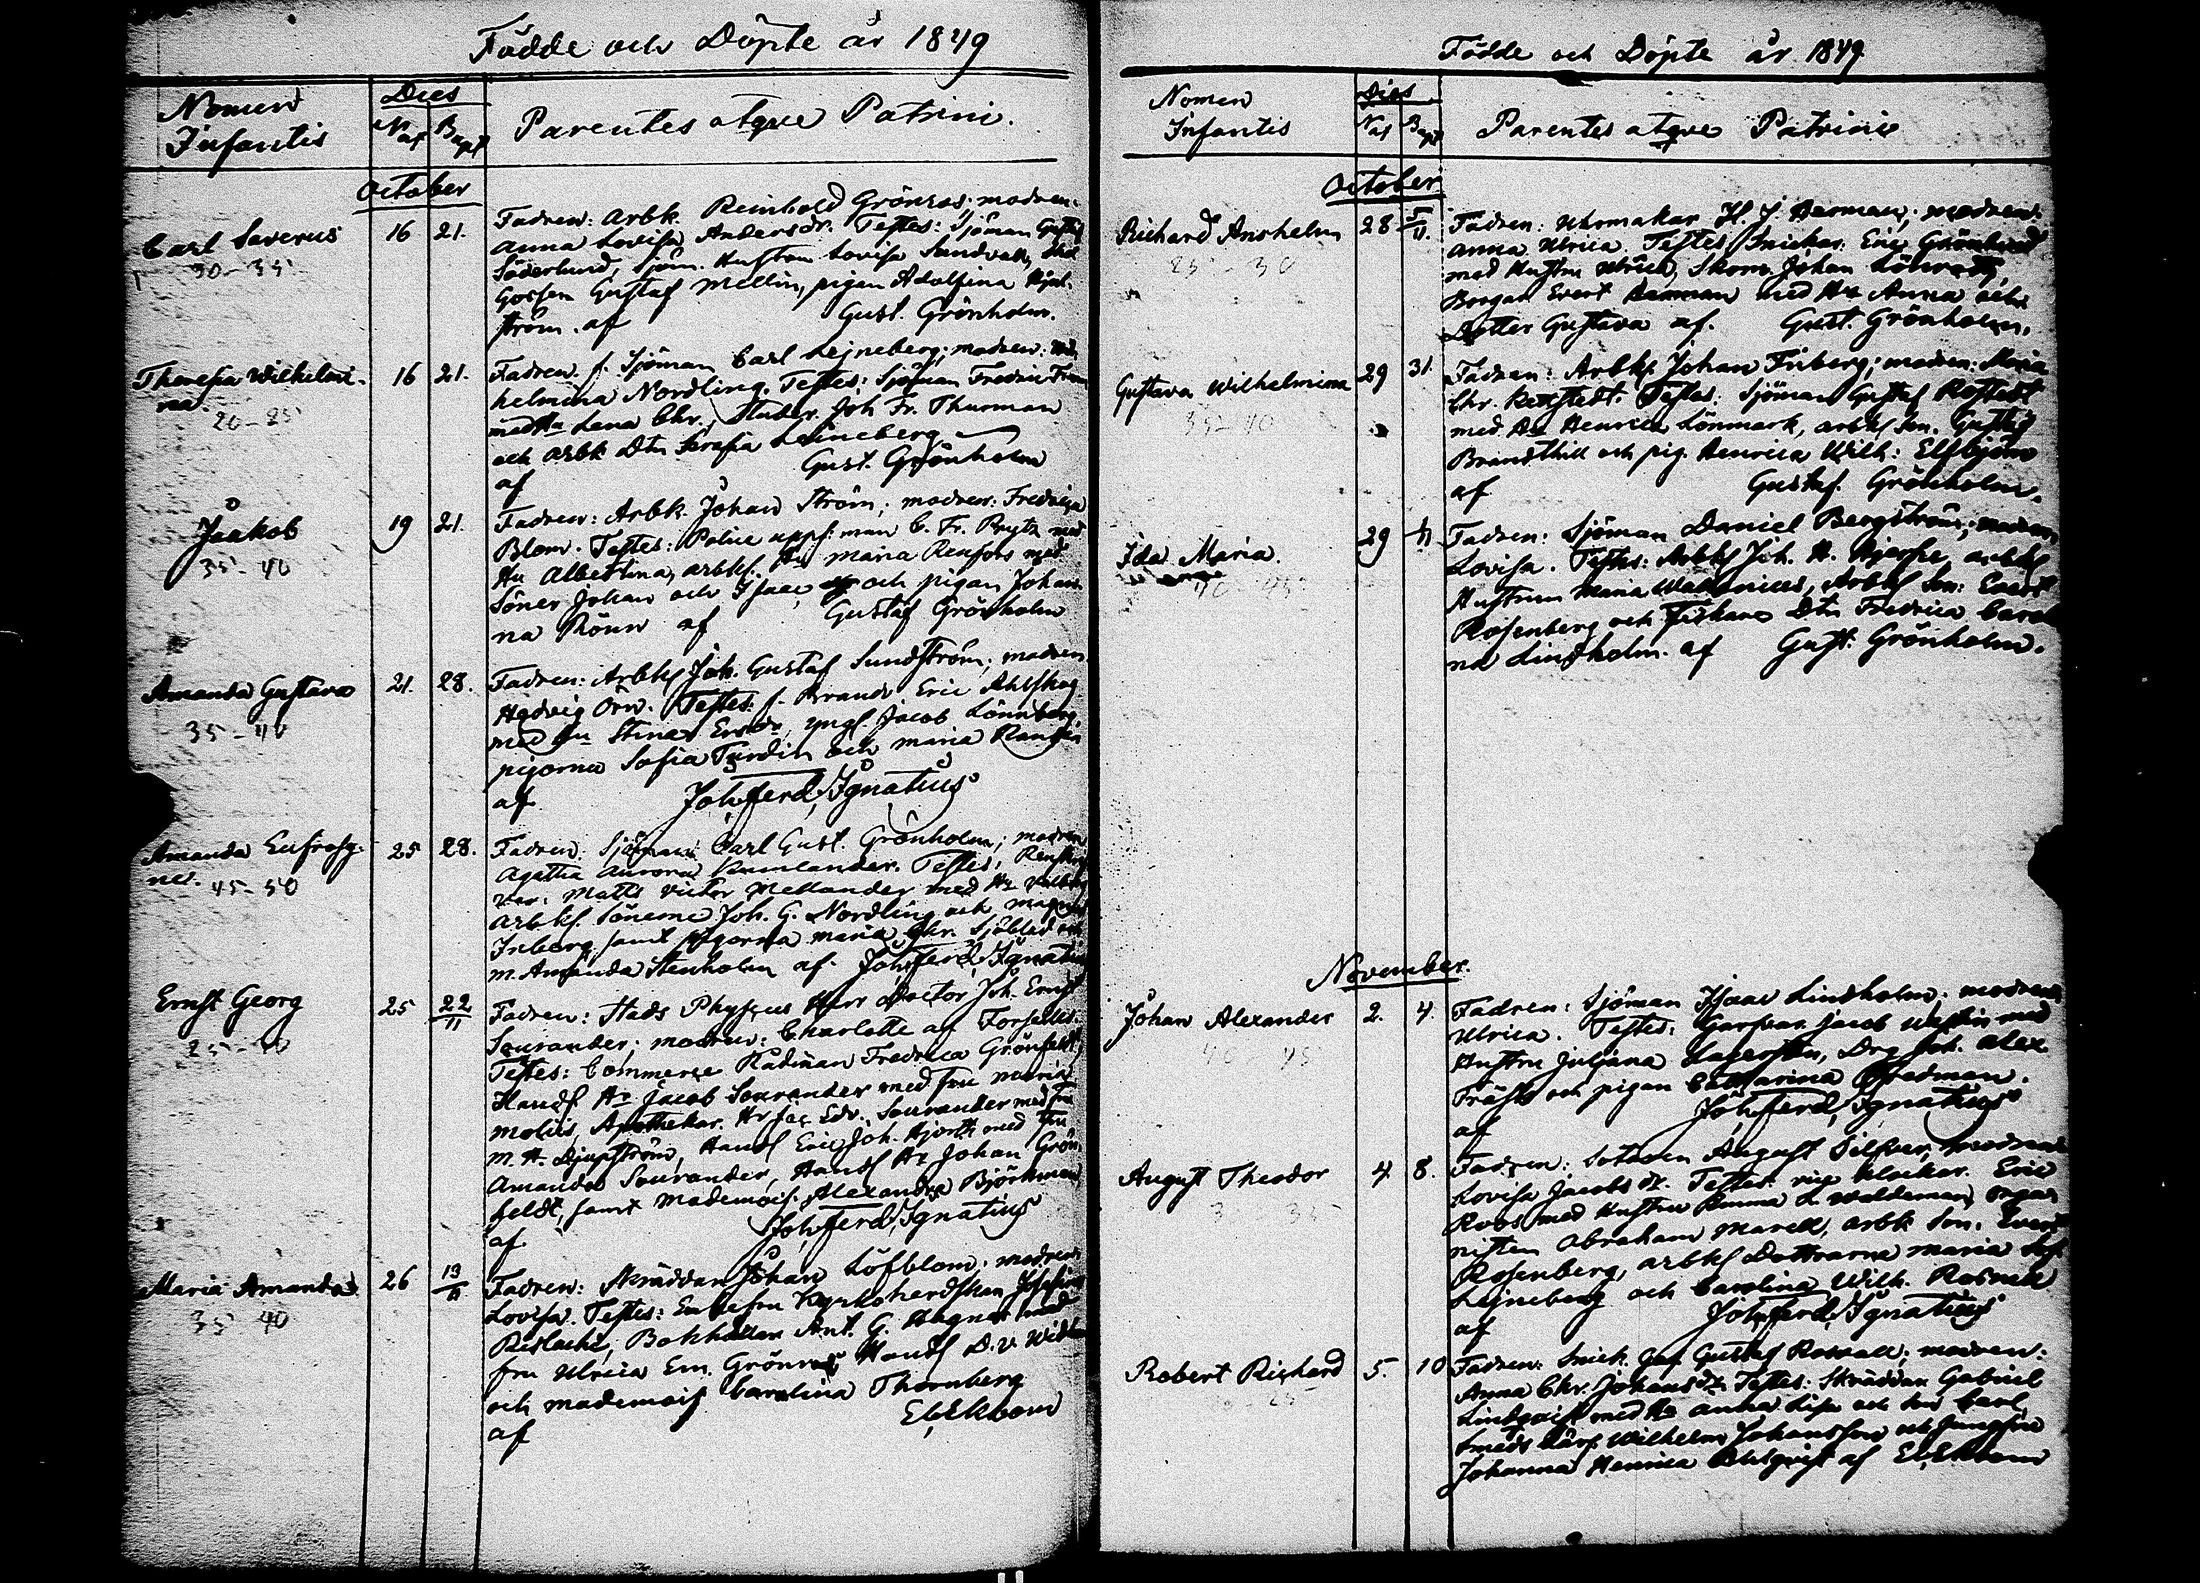 Födde och Döpte år 1849
Nomen Infantis
Dies
Nat Bapt
Parentes atque Patrini.
October
Carl Severus
30-35
16 21.
Fadren: Arbk. Reinhold Grönros; modren:
Anna Lovisa Andersdr. Testes: Sjöman Gustaf
Söderlund, Sjöm. Hustrun Lovisa Sundvall,
Gossen Gustaf Mellin, pigan Adolfina Hjel-
ström. af Gust. Grönholm.
Theresia Wilhelmi-
na.
20-25
16 21.
Fadren f. Sjöman Carl Lejneberg; modren: Wil-
helmina Nordling. Testes: Sjöman Fredric
med Hu Lena Chr., Studer. Joh Fr. Thurman
och arbk Dtn Serafia Leineberg
af Gust. Grönholm
Jaakob
35-40
19 21.
Fadren: Arbk. Johan Ström; modren: Fredrica
Blom. Testes: Police uppsman C. Fr. Prytz med
Hu Albertina, arbks. Hu Maria Renfors med
Söner Johan och Isaac och pigan Johan-
na Rönn af Gustaf Grönholm
Amanda Gustava
35-40
21. 28.
Fadren: Arbks Joh. Gustaf Sundström; modren
Hedvig Örn. Testes: f. Brandv Eric Ahlskog
med Hu Stina Ersdr, yngl. Jacob Lönnberg,
pigorna Sofia Turdin och Maria
af Joh. Ferd. Ignatius
Amanda Eufrosy-
ne.
45-50
25 28.
Fadren: Sjöman Carl Gust. Grönholm; modren
Agatha Aurora Rumlander. Testes:
Matts Victor Mellander med Hu
arbks. sönerne Joh. G. Nordling och Magnus
Friberg, samt pigorna Maria Chr. Sjöblad och
M. Amanda Stenholm af Joh. Ferd. Ignatius
Ernst Georg
25 22/11
Fadren: Stads Physicus Herr Doctor Joh. Ernst
Sourander; modren: Charlotte af Forselles.
Testes: Commerce Rådman Fredrica Grönfeldt,
Handl Hr Jacob Sourander med fru Maria
Molin, Apothekar. Hr Edv. Sourander med fru
M. H. Djupström, Handl Eric Joh. Hjorth med fru
Amanda Sourander, Handl Hr Johan Grön-
feldt, samt Mademois. Alexandra Björkman
af Joh. Ferd. Ignatius
Maria Amanda
35 40
26 13/11
Fadren: Skräddar Johan Löfblom; modren
Lovisa. Testes: Enkefru Kyrkoherdskan Josefina
Rislachi, Bokhållar Ant. G. med
fru Ulrica Em. Grönros Handl D. V.
och Mademois Carolina Thornberg
af E. Ekbom
Födde och Döpte år 1849
Nomen Infantis
Dies
Nat Bapt
Parentes atque Patrini
October
Richard Anshelm
25-30
28 5/11.
Fadren: Uhrmakar H. J. Berman; modren:
Anna Ulrica. Testes: Snickar. Eric Grönlund
med Hustru Ulrica, Skom. Johan
Borgar Evert Berman med Hu Anna och
Dotter Gustava af. Gust. Grönholm.
Gustava Wilhelmina
35-40
29 31.
Fadren: Arbks Johan Friberg; modren: Maria
Chr. Testes: Sjöman Gustaf Rostedt
med Hu Henrica Lönmark, arbks son. Gustaf
Brandthill och pig. Henrica Wilh: Elfbjörn
af Gustaf. Grönholm.
Ida Maria.
40-45
29
Fadren: Sjöman Daniel Bergström; modren
Lovisa. Testes: Arbks Joh. H. Hjerpe, arbks
Hustrun Maria Wallenius, Arbks son: Evert
Rosenberg och Fiskare Dtn Fredrica Caroli-
na Lindholm. af Gust. Grönholm.
November.
Johan Alexander
40 45
2. 4.
Fadren: Sjöman Isaac Lindholm; modren
Ulrica. Testes: Garfvar. Jacob Westlin med
Hustru Juliana Lagerstén, Drg Joh. Alex.
Träsk och pigan Catharina Fredman.
af Joh. Ferd. Ignatius
August Theodor
4 8.
Fadren: Sotaren August Silfver, modren
Lovisa Jacobsdr. Testes: vice klockar. Eric
Roos med Hustru Anna L. Waldeman, orga-
nisten Abraham Marell, arbk Son. Evert
Rosenberg, arbks Dottrarna Maria Sof.
Lejneberg och Carolina Wilh. Rosnell
af Joh. Ferd. Ignatius
Robert Richard
5. 10
Fadren: Snick. Ges. Gustaf Rosvall; modren:
Anna Chr. Johansdr Testes: Skräddar Gabriel
Lindqvist med Hu Anna Lisa och son Carl,
Smeds Lärl. Wilhelm Johansson och Jungfru
Johanna Henrica Ahlqvist af E. Ekbom